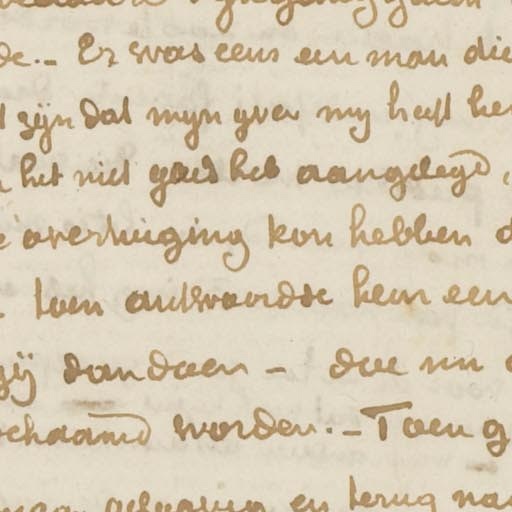 de. – Er was eens een man die
zijn dat mijn yver my heeft
het niet goed heb aangelegd,
overtuiging kon hebben
toen antwoordde hem een
gij dan doen – doe nu
schaamd worden. – Toen g
en terug na